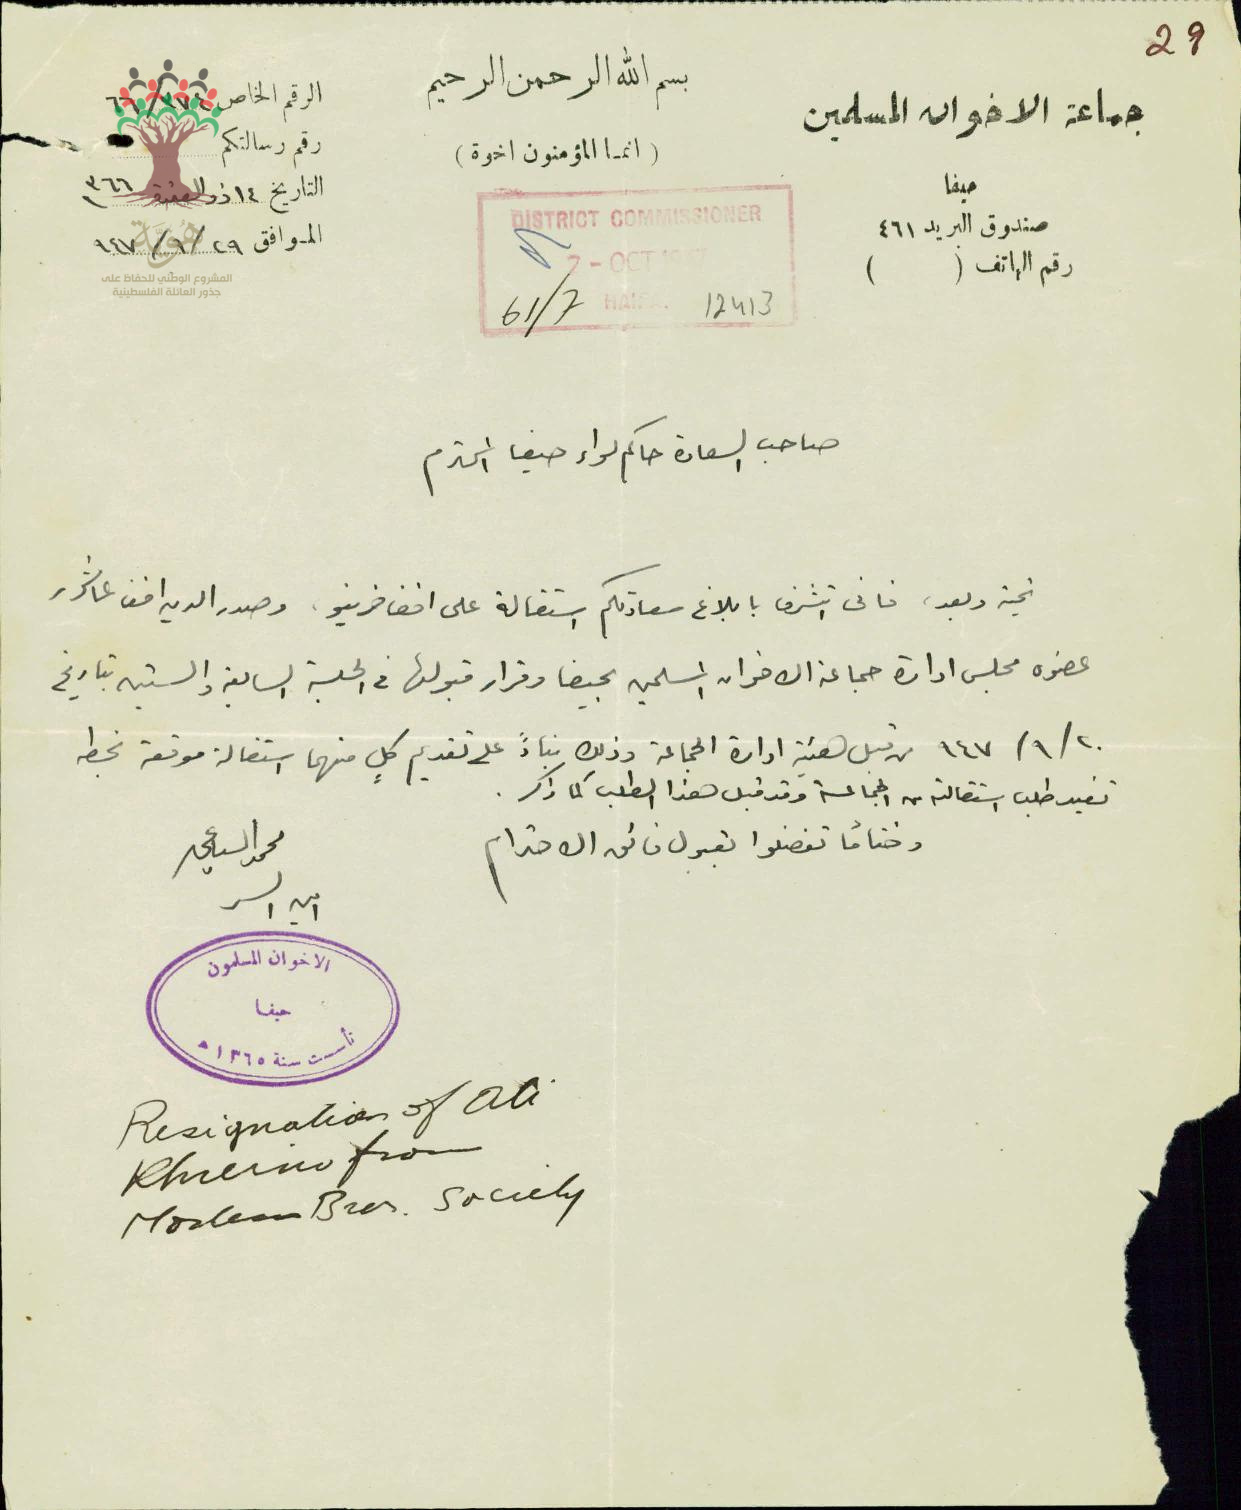 29
بسم الله الرحمن الرحيم
( انما المؤمنون اخوة )
جماعة الاخوان المسلمين
حيفا
صندوق البريد ٤٦١
رقم الهاتف ( )
الرقم الخاص ٣٧٤/٦٦
رقم رسالتكم
التاريخ ١٤ ذو القعدة ١٣٦٦
الموافق ٢٩/٩/٩٤٧
هوية
المشروع الوطني للحفاظ على
جذور العائلة الفلسطينية
DISTRICT COMMISSIONER
7 - OCT 1947
HAIFA.
61/7
12413
صاحب السعادة حاكم لواء حيفا المحترم
تحية وبعد، فانى اتشرف بابلاغ سعادتكم استقالة على افندى خرينو، وصدر الدين افندى
عضوى مجلس ادارة جماعة الاخوان المسلمين بحيفا وقرار قبولها فى الجلسة السابعة والستين بتاريخ
٢٠/٩/٩٤٧ من قبل هيئة ادارة الجماعة وذلك بناءً على تقديم كلٍ منهما استقالة موقعة بخطه
تفيد طلب استقالته من الجماعة وقد قبل هذا الطلب كما ذكر .
وختامًا تفضلوا بقبول فائق الاحترام
محمد السباعي
امين السر
الاخوان المسلمون
حيفا
تأسست سنة ١٣٦٥ هـ
Resignation of Ali
Khreino from
Moslem Bros. Society